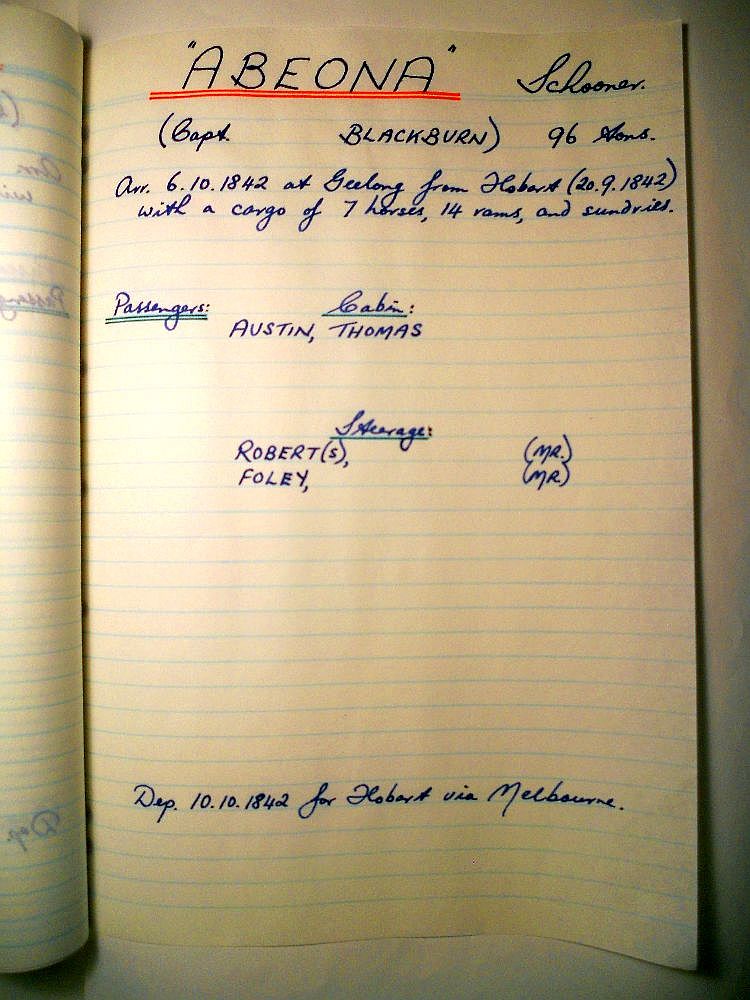 "ABEONA" Schooner.
(Capt. BLACKBURN) 96 tons.
Arr. 6.10.1842 at Geelong from Hobart (20.9.1842)
with a cargo of 7 horses, 14 rams, and sundries.
Passengers: Cabin:
AUSTIN, THOMAS
Steerage:
ROBERT(S), (MR.)
FOLEY, (MR.)
Dep. 10.10.1842 for Hobart via Melbourne.